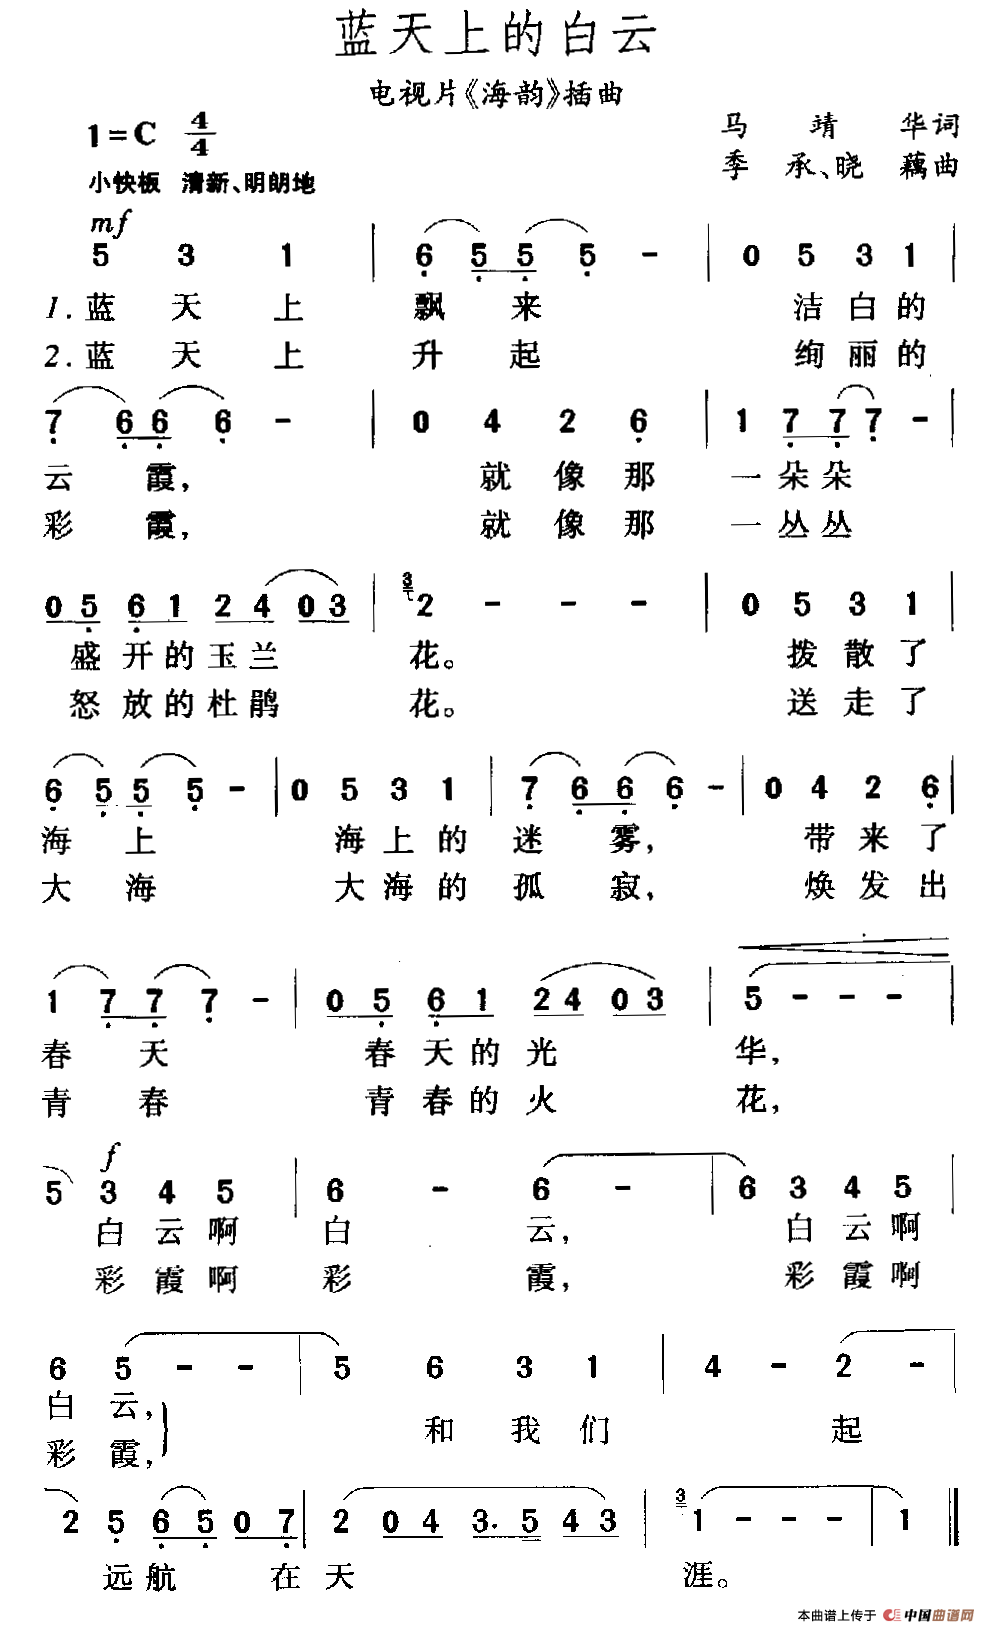 蓝天上的白云
电视片《海韵》插曲
1=C 4/4
马靖华词
季承、晓藕曲
小快板 清新、明朗地
mf
5 3 1 | 6 5 5 5 - | 0 5 3 1 |
1.蓝天上飘来 洁白的
2.蓝天上升起 绚丽的
7 6 6 6 - | 0 4 2 6 | 1 7 7 7 - |
云霞, 就像那一朵朵
彩霞, 就像那一丛丛
0 5 6 1 2 4 0 3 | 3 2 - - - | 0 5 3 1 |
盛开的玉兰花。 拨散了
怒放的杜鹃花。 送走了
6 5 5 5 - | 0 5 3 1 | 7 6 6 6 - | 0 4 2 6 |
海上 海上的迷雾, 带来了
大海 大海的孤寂, 焕发出
1 7 7 7 - | 0 5 6 1 2 4 0 3 | 5 - - - |
春天 春天的光华,
青春 青春的火花,
f
5 3 4 5 | 6 - 6 - | 6 3 4 5 |
白云啊白云, 白云啊
彩霞啊彩霞, 彩霞啊
6 5 - - | 5 6 3 1 | 4 - 2 - |
白云,
彩霞,
和我们起
2 5 6 5 0 7 | 2 0 4 3. 5 4 3 | 3 1 - - - | 1 ‖
远航在天涯。
本曲谱上传于 中国曲谱网